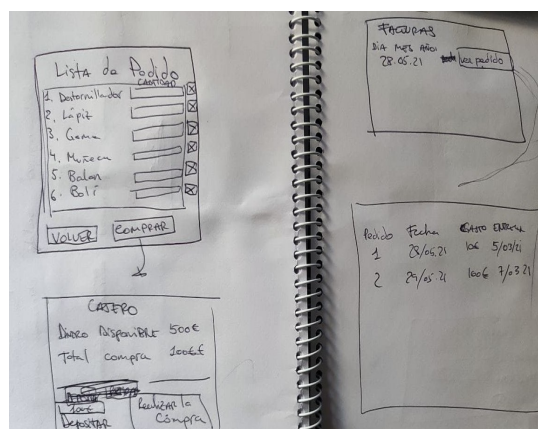 Lista de Pedido
CANTIDAD
1. Datornillador
2. Lápiz
3. Goma
4. Muñeca
5. Balon
6. Boli
VOLVER
COMPRAR
CAJERO
Dinero Disponible 500€
Total compra 100€
100€
Depositar
Realizar la
Compra
FACTURAS
DIA MES AÑO
28.05.21 ver pedido
Pedido Fecha GASTO ENTREGA
1 28/05.21 10€
2 29/05.21 100€ 7/03 21